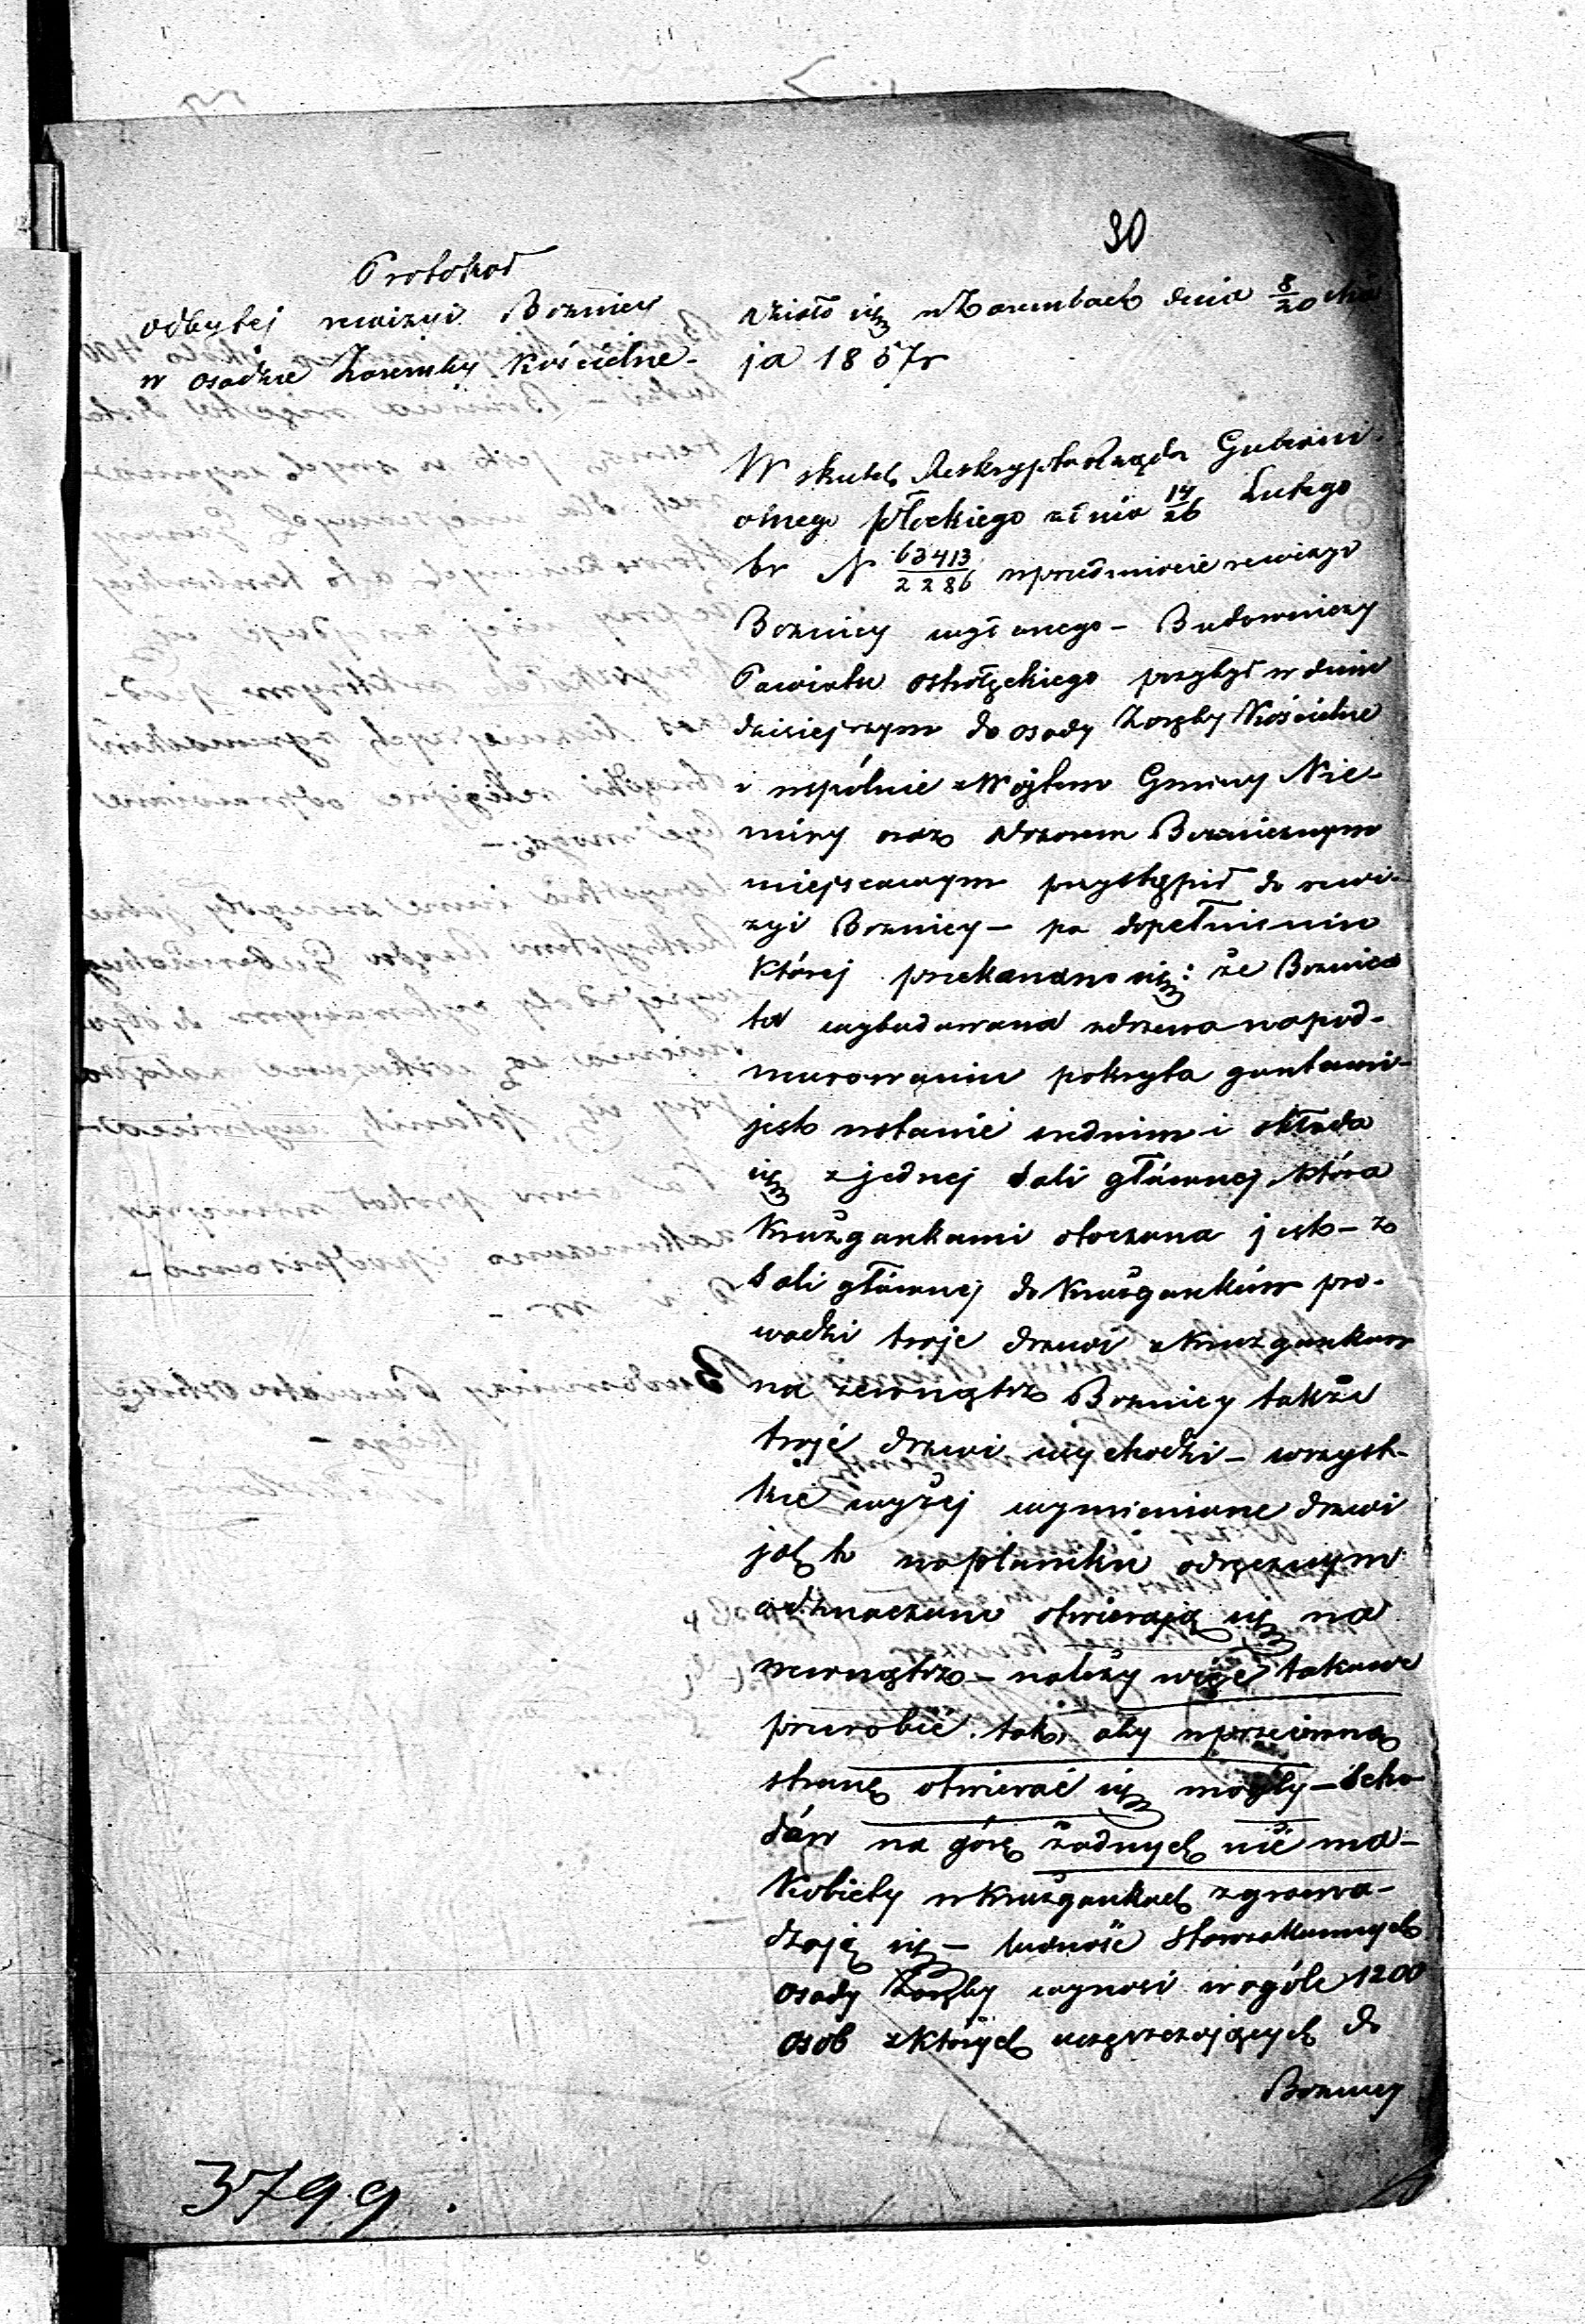 30
Protokoł
odbytej rewizyi Boznicy
w osadzie Zaremby Kościelne -
Działo się w Zarembach dnia 8/20 Ma
ja 1857 r
W skutek Reskryptu Rządu Guberni
alnego Płockiego z dnia 14/26 Lutego
br N 63413/2286 w przedmiocie rewizyi
Boznicy wydanego - Budowniczy
Powiatu Ostrołęckiego przybył w dniu
dzisiejszym do osady Zaręby Kościelne
i wspólnie z Wójtem Gminy Nie-
miry oraz Dozorem Bozniczym
miejscowym przystąpił do rewi-
zyi Boznicy - po dopełnieniu
której przekonano się: że Boznica
ta wybudowana z drzewa na pod-
murowaniu pokryta gontami -
jest w stanie srednim i składa
się z jednej Sali głównej która
Krużgankami otoczona jest - z
Sali głównej do Krużganków pro-
wadzi troje drzwi z Kruzganków
na zewnątrz Boznicy także
troje drzwi wychodzi - wszyst-
kie wyżej wymienione drzwi
jak to na planiku odręcznym
odznaczono otwierają się na
wewnątrz - należy więc takowe
przerobić tak aby w przeciwną
stronę otwierać się mogły - Scho
dów na górę żadnych nie ma -
Kobiety w Krużgankach zgroma-
dzają się - ludność Starozakonnych
osady Zaręby wynosi w ogóle 1200
osób z których uczęszczających do
Boznicy
3799.